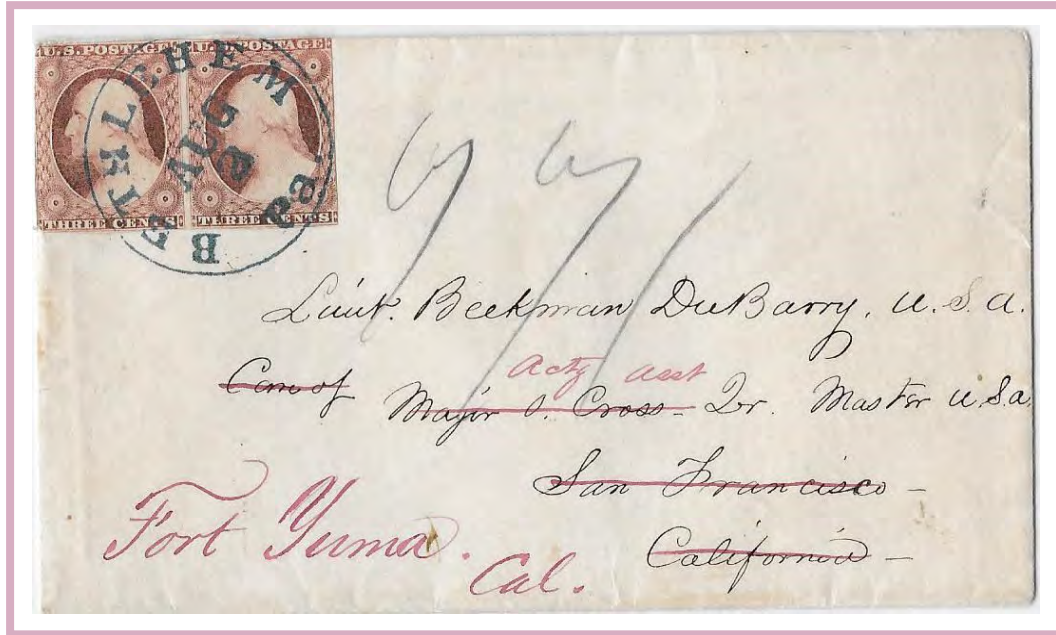 U.S. POSTAGE U.S. POSTAGE
THREE CENTS THREE CENTS
BETHLEHEM Pa
AUG
Lieut. Beekman DuBarry, U.S.A.
Acty Asst
Care of Major O. Cross - Qr. Master U.S.a
San Francisco -
California -
Fort Yuma.
Cal.